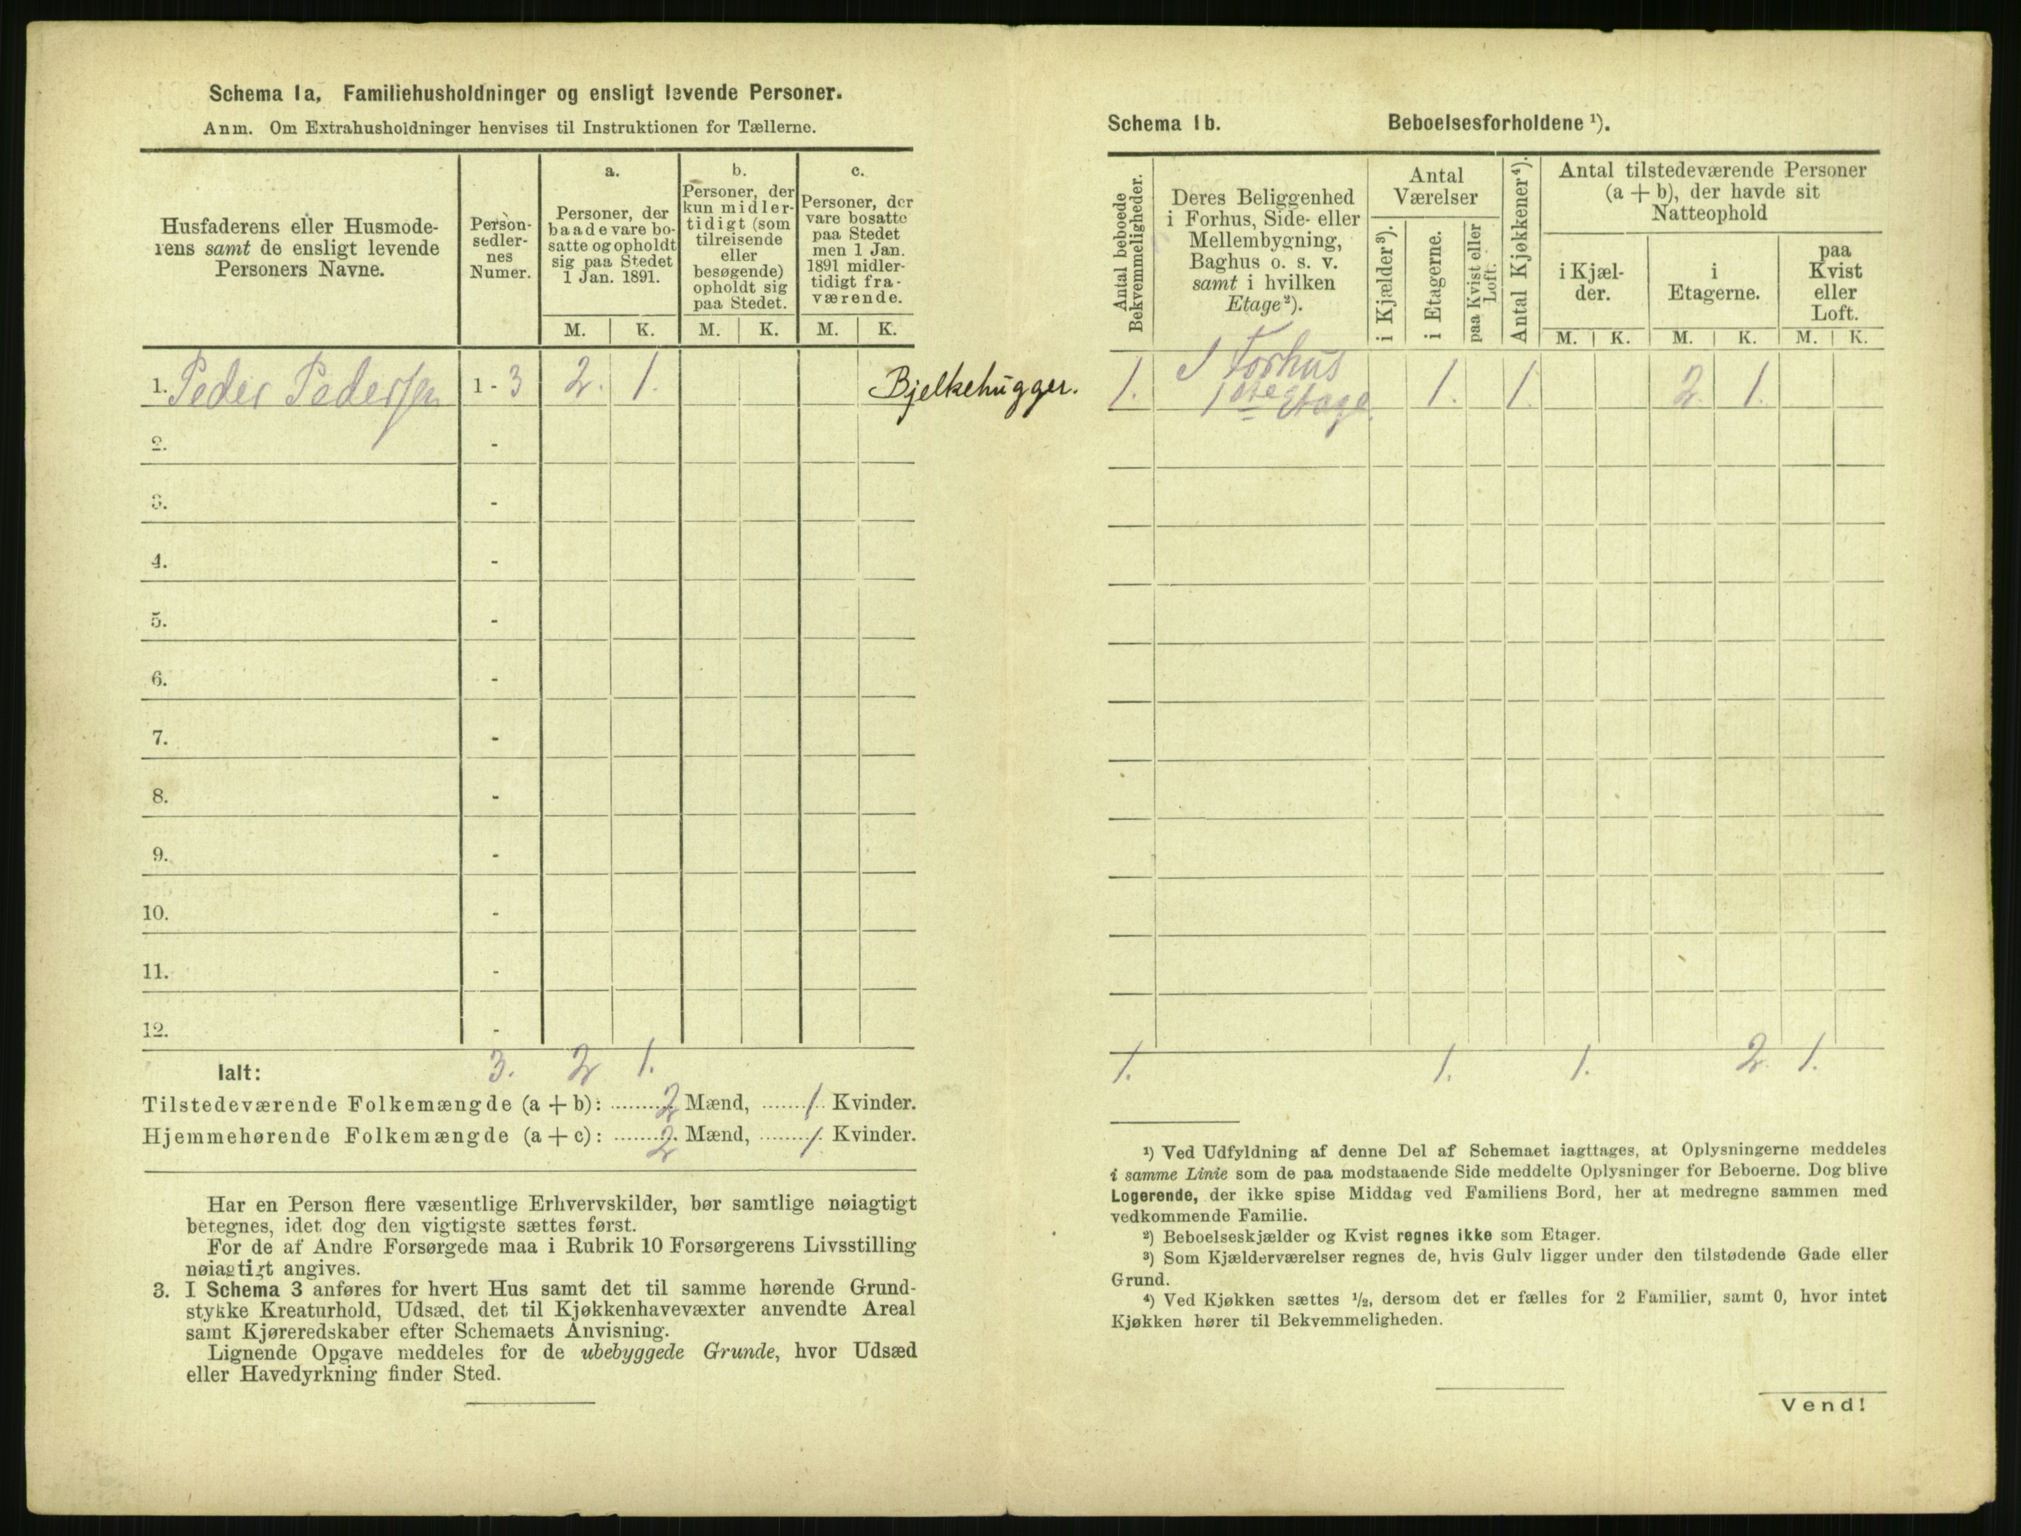 Schema 1a, Familiehusholdninger og ensligt levende Personer.
Anm. Om Extrahusholdninger henvises til Instruktionen for Tællerne.
Husfaderens eller Husmode-
rens samt de ensligt levende
Personers Navne.
Person-
sedler-
nes
Numer.
a.
Personer, der
baade vare bo-
satte og opholdt
sig paa Stedet
1 Jan. 1891.
b.
Personer, der
kun midler-
tidigt (som
tilreisende
eller
besøgende)
opholdt sig
paa Stedet.
c.
Personer, der
vare bosatte
paa Stedet
men 1 Jan.
1891 midler-
tidigt fra-
værende.
M. K. M. K. M. K.
1. Peder Pedersen 1 - 3 2. 1. Bjelkehugger.
2. -
3. -
4. -
5. -
6. -
7. -
8. -
9. -
10. -
11. -
12. -
Ialt: 3. 2 1.
Tilstedeværende Folkemængde (a + b): 2 Mænd, 1 Kvinder.
Hjemmehørende Folkemængde (a + c): 2 Mænd, 1 Kvinder.
Har en Person flere væsentlige Erhvervskilder, bør samtlige nøiagtigt
betegnes, idet dog den vigtigste sættes først.
For de af Andre Forsørgede maa i Rubrik 10 Forsørgerens Livsstilling
nøiagtigt angives.
3. I Schema 3 anføres for hvert Hus samt det til samme hørende Grund-
stykke Kreaturhold, Udsæd, det til Kjøkkenhavevæxter anvendte Areal
samt Kjøreredskaber efter Schemaets Anvisning.
Lignende Opgave meddeles for de ubebyggede Grunde, hvor Udsæd
eller Havedyrkning finder Sted.
Schema 1b. Beboelsesforholdene ¹).
Antal beboede
Bekvemmeligheder.
Deres Beliggenhed
i Forhus, Side- eller
Mellembygning,
Baghus o. s. v.
samt i hvilken
Etage²).
Antal
Værelser
i Kjælder³).
i Etagerne.
paa Kvist eller
Loft.
Antal Kjøkkener⁴).
Antal tilstedeværende Personer
(a + b), der havde sit
Natteophold
i Kjæl-
der.
i
Etagerne.
paa
Kvist
eller
Loft.
M. K. M. K. M. K.
1. I Forhus 1. 1. 2. 1.
1ste Etage.
1. 1. 1. 2. 1.
¹) Ved Udfyldning af denne Del af Schemaet iagttages, at Oplysningerne meddeles
i samme Linie som de paa modstaaende Side meddelte Oplysninger for Beboerne. Dog blive
Logerende, der ikke spise Middag ved Familiens Bord, her at medregne sammen med
vedkommende Familie.
²) Beboelseskjælder og Kvist regnes ikke som Etager.
³) Som Kjælderværelser regnes de, hvis Gulv ligger under den tilstødende Gade eller
Grund.
⁴) Ved Kjøkken sættes ½, dersom det er fælles for 2 Familier, samt 0, hvor intet
Kjøkken hører til Bekvemmeligheden.
Vend!